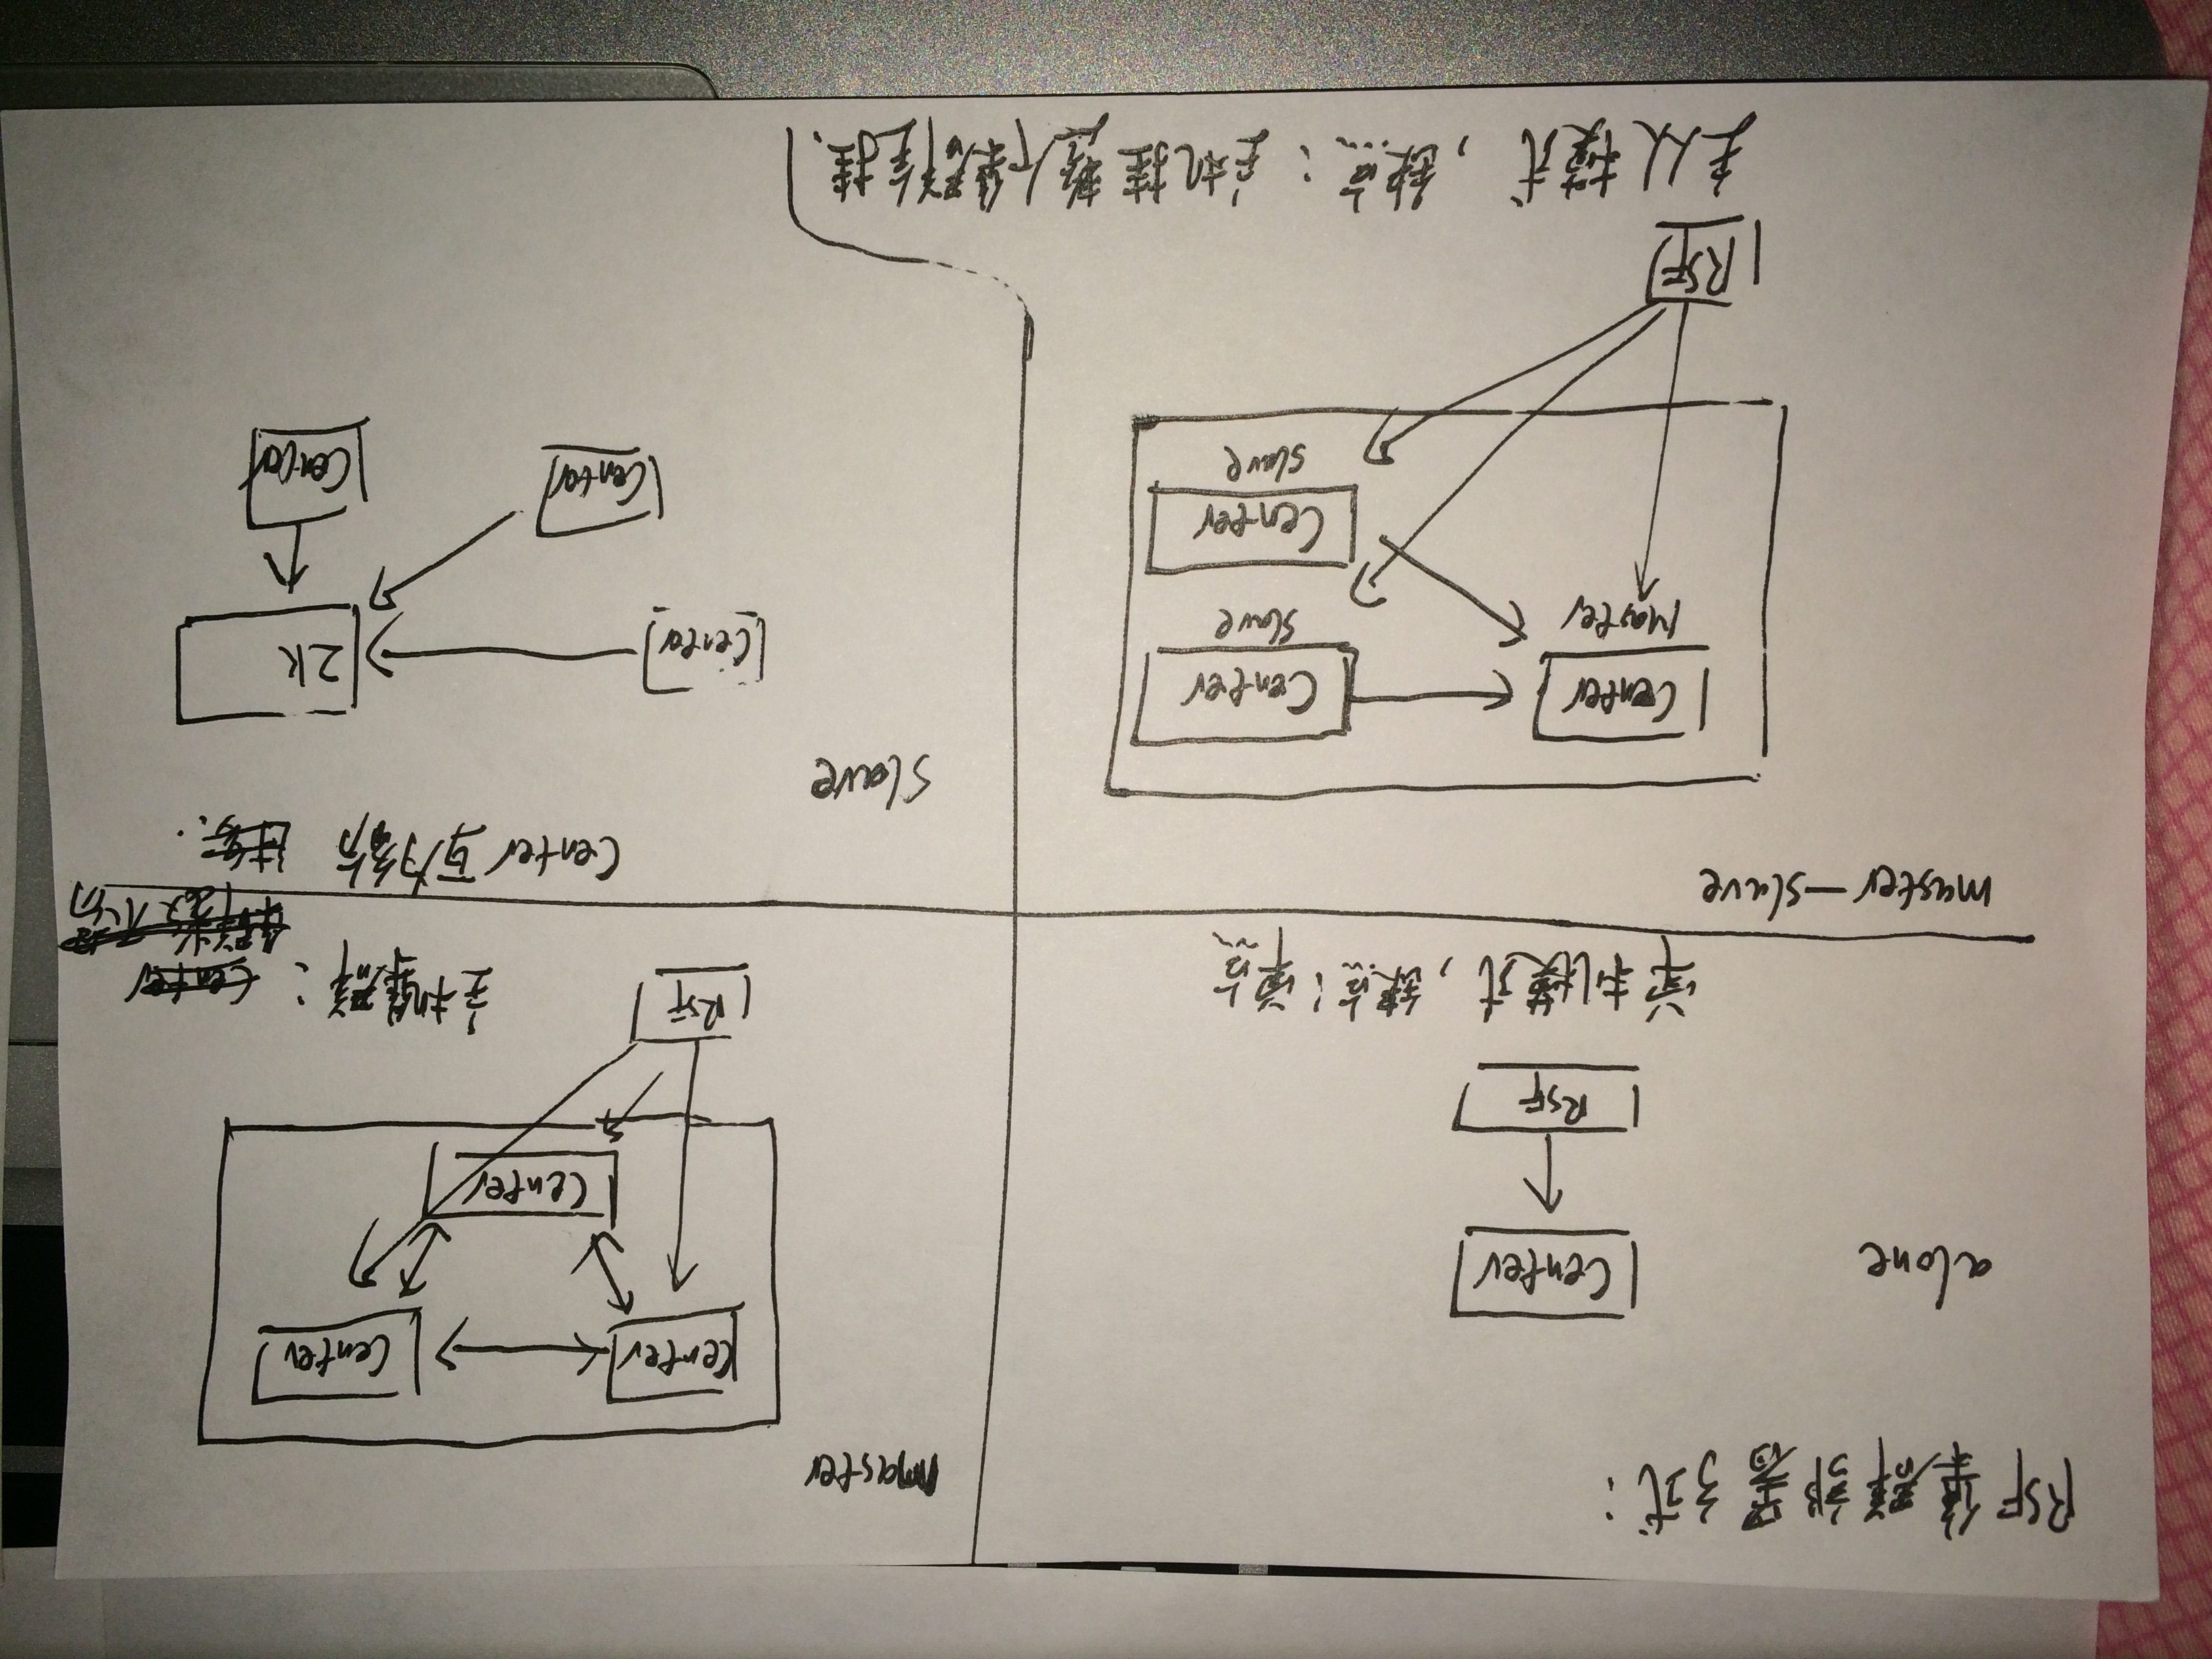 RSF集群部署方式:
alone
Center
RSF
单机模式,缺点:单点
master
Center
Center
Center
RSF
主机集群: Center
集群数不易
Center互为备份 过多..
master-slave
Center
Master
Center
slave
Center
slave
RSF
主从模式,缺点:主机挂整个集群全挂、
slave
Center
ZK
Center
Center